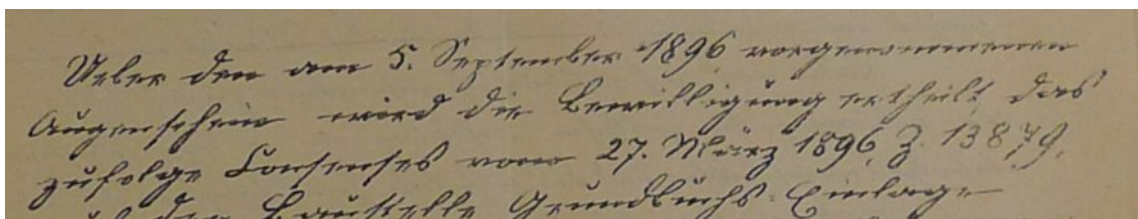 Ueber den am 5. September 1896 vorgenommenen
Augenschein wird die Bewilligung ertheilt, das
zufolge Consenses vom 27. März 1896, Z. 13879,
auf der Baustelle Grundbuchs-Einlage